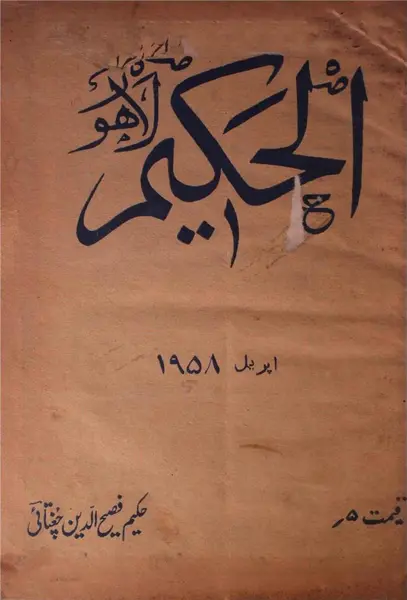 الحکیم
لاہور
اپریل ۱۹۵۸
قیمت ۵ر
حکیم فصیح الدین چغتائی